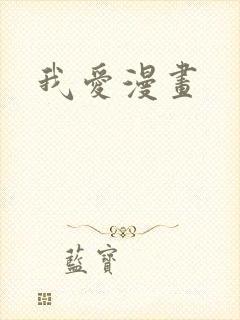 我愛漫畫
藍寶